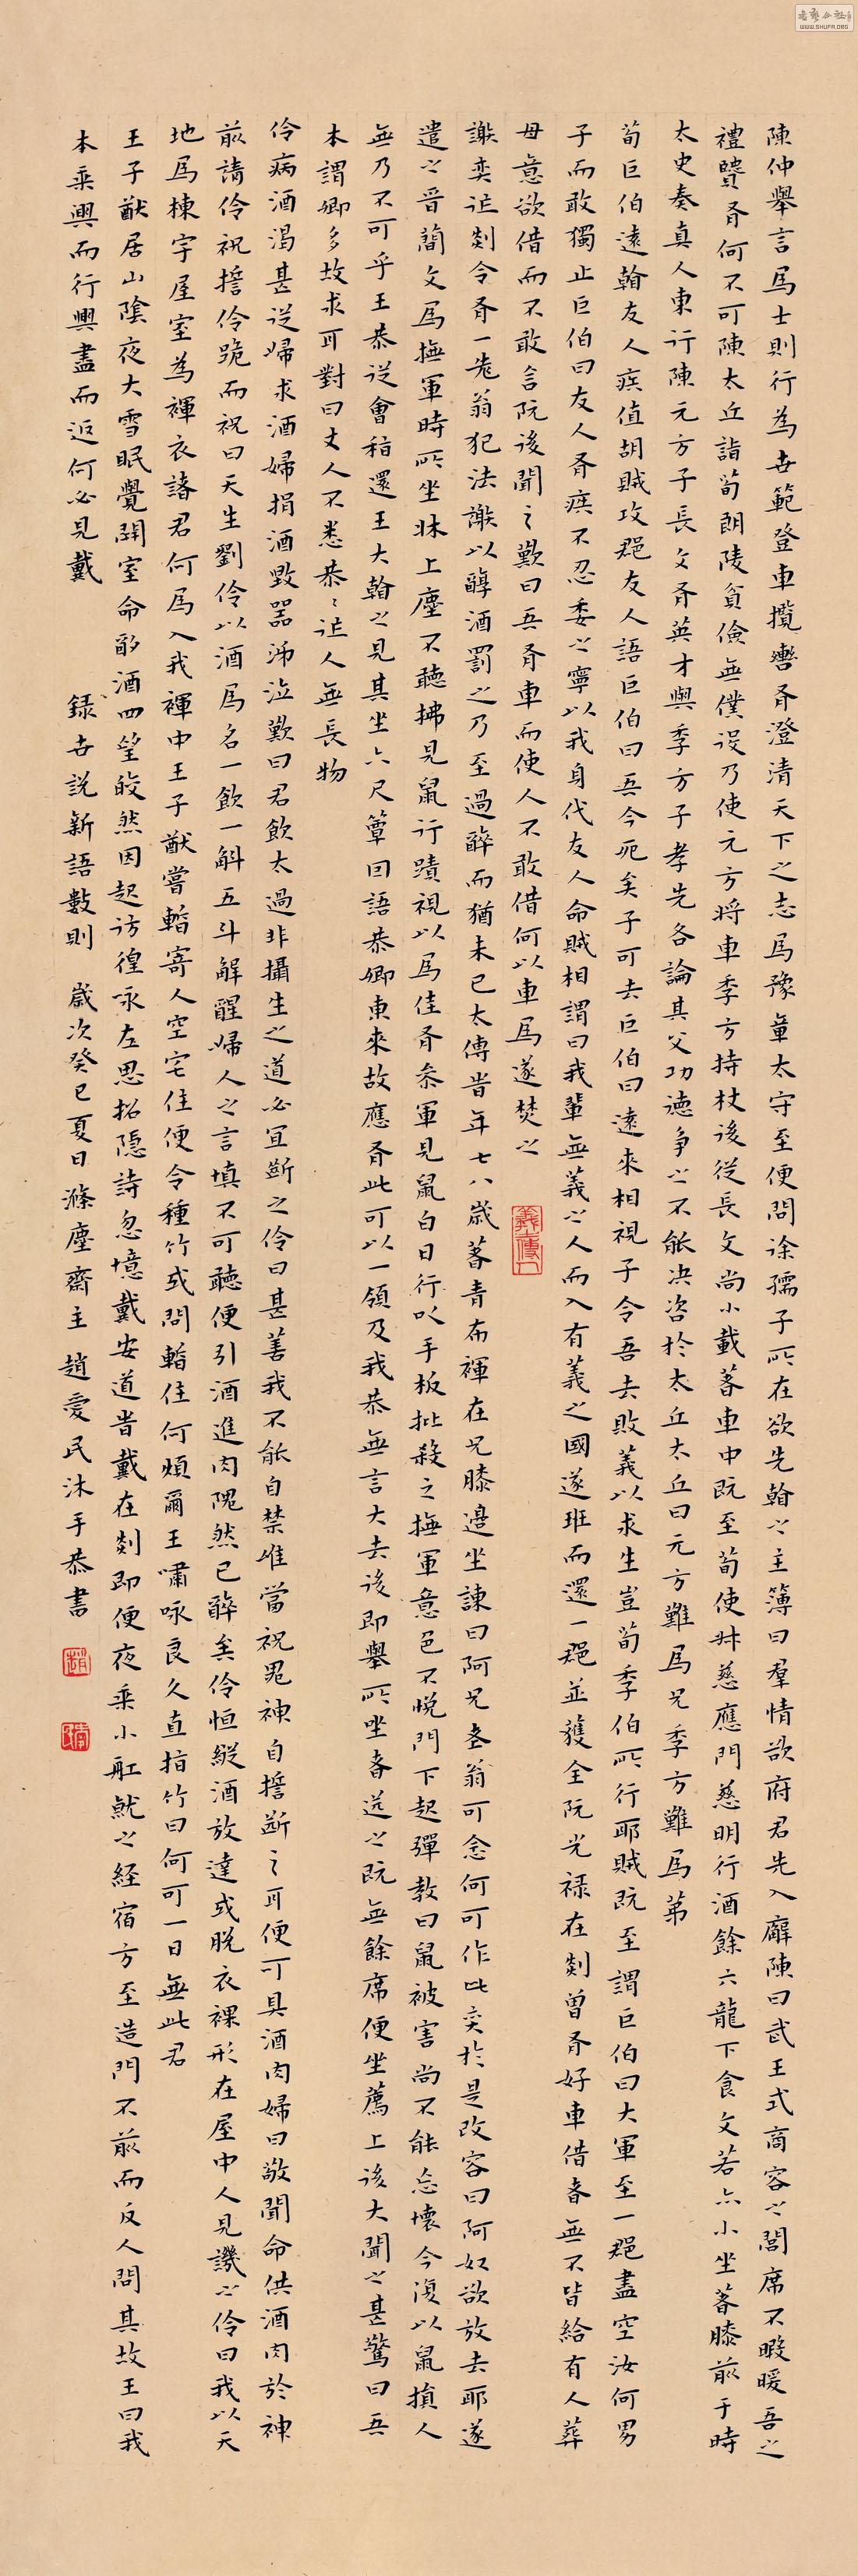 陳仲舉言為士則行為世範登車攬轡有澄清天下之志為豫章太守至便問徐孺子所在欲先翰之主簿曰羣情欲府君先入廨陳曰武王式商容之閭席不暇暖吾之
禮賢有何不可陳太丘詣荀朗陵貧儉無僕役乃使元方將車季方持杖後從長文尚小載著車中既至荀使叔慈應門慈明行酒餘六龍下食文若亦小坐著膝前于時
太史奏真人東行陳元方子長文有英才與季方子孝先各論其父功德爭之不能決咨於太丘太丘曰元方難為兄季方難為弟
荀巨伯遠翰友人疾值胡賊攻郡友人語巨伯曰吾今死矣子可去巨伯曰遠來相視子令吾去敗義以求生豈荀季伯所行耶賊既至謂巨伯曰大軍至一郡盡空汝何男
子而敢獨止巨伯曰友人有疾不忍委之寧以我身代友人命賊相謂曰我輩無義之人而入有義之國遂班而還一郡並獲全阮光祿在剡曾有好車借者無不皆給有人葬
母意欲借而不敢言阮後聞之歎曰吾有車而使人不敢借何以車為遂焚之
謝奕作剡令有一老翁犯法謝以醇酒罰之乃至過醉而猶未已太傅昔年七八歲著青布褌在兄膝邊坐諫曰阿兄老翁可念何可作此奕於是改容曰阿奴欲放去耶遂
遣之晉簡文為撫軍時所坐牀上塵不聽拂見鼠行蹟視以為佳有參軍見鼠白日行以手板批殺之撫軍意色不悅門下起彈教曰鼠被害尚不能忘懷今復以鼠損人
無乃不可乎王恭從會稽還王大翰之見其坐六尺簟因語恭卿東來故應有此可以一領及我恭無言大去後即舉所坐者送之既無餘席便坐薦上後大聞之甚驚曰吾
本謂卿多故求耳對曰丈人不悉恭恭作人無長物
伶病酒渴甚從婦求酒婦捐酒毀器涕泣歎曰君飲太過非攝生之道必宜斷之伶曰甚善我不能自禁唯當祝鬼神自誓斷之耳便可具酒肉婦曰敬聞命供酒肉於神
前請伶祝誓伶跪而祝曰天生劉伶以酒為名一飲一斛五斗解酲婦人之言填不可聽便引酒進肉隗然已醉矣伶恒縱酒放達或脫衣裸形在屋中人見譏之伶曰我以天
地為棟宇屋室為褌衣諸君何為入我褌中王子猷嘗暫寄人空宅住便令種竹或問暫住何煩爾王嘯咏良久直指竹曰何可一日無此君
王子猷居山陰夜大雪眠覺開室命酌酒四望皎然因起彷徨咏左思招隱詩忽憶戴安道昔戴在剡即便夜乘小舡就之經宿方至造門不前而反人問其故王曰我
本乘興而行興盡而返何必見戴 錄世說新語數則 歲次癸巳夏日滌塵齋主趙愛民沐手恭書
WWW.SHUFA.ORG